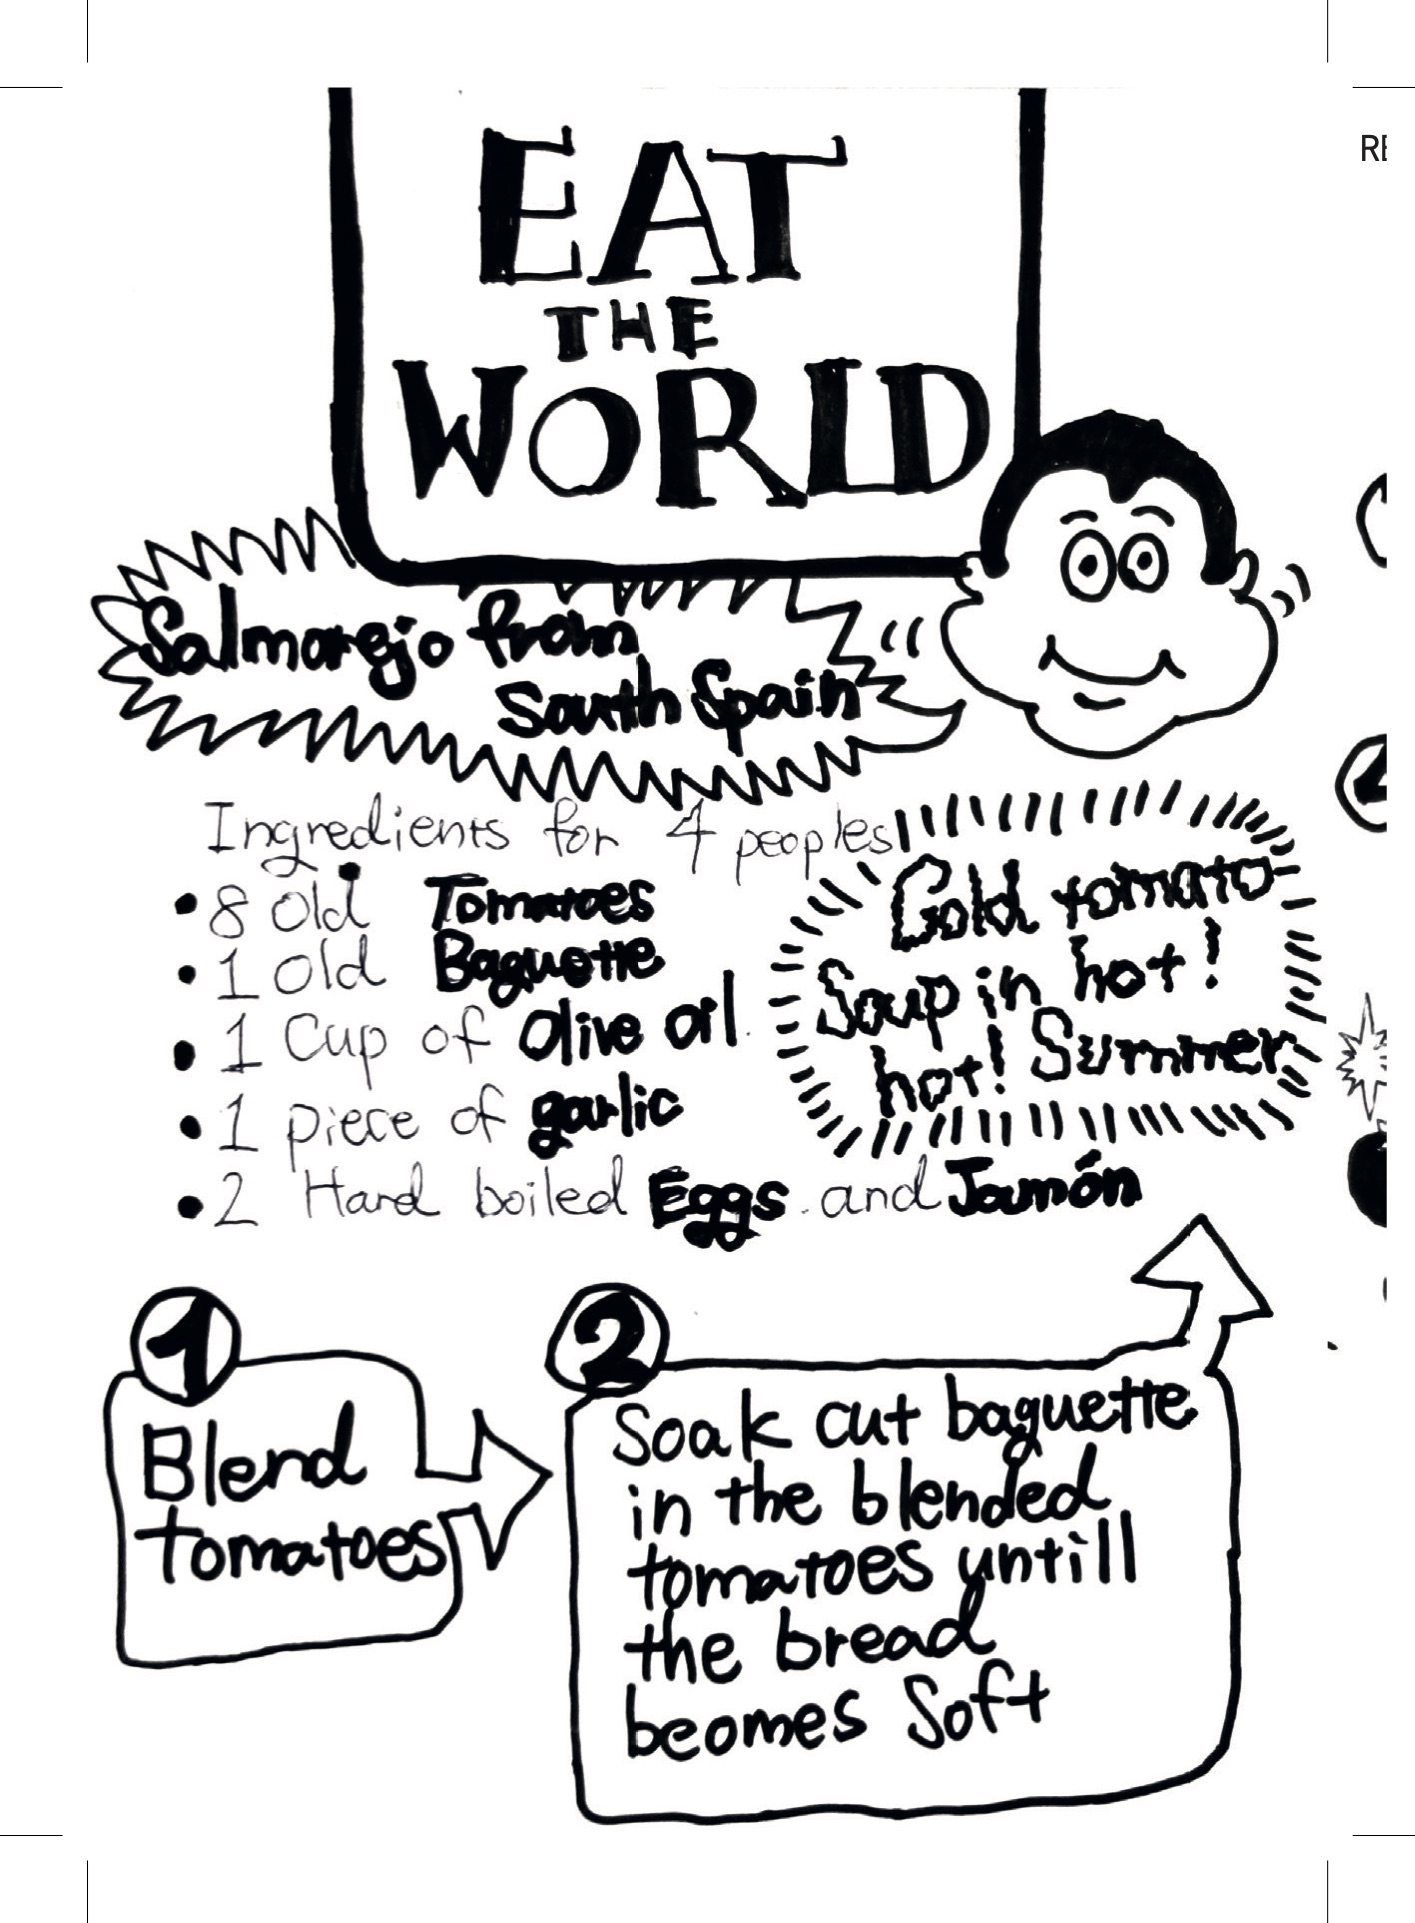 EAT
THE
WORLD
Salmorejo from
South Spain
Ingredients for 4 peoples
• 8 Old Tomatoes
• 1 Old Baguette
• 1 Cup of Olive oil.
• 1 piece of garlic
• 2 Hard boiled Eggs. and Jamón
Cold tomato
Soup in hot!
hot! Summer
1
Blend
tomatoes
2
Soak cut baguette
in the blended
tomatoes untill
the bread
beomes Soft